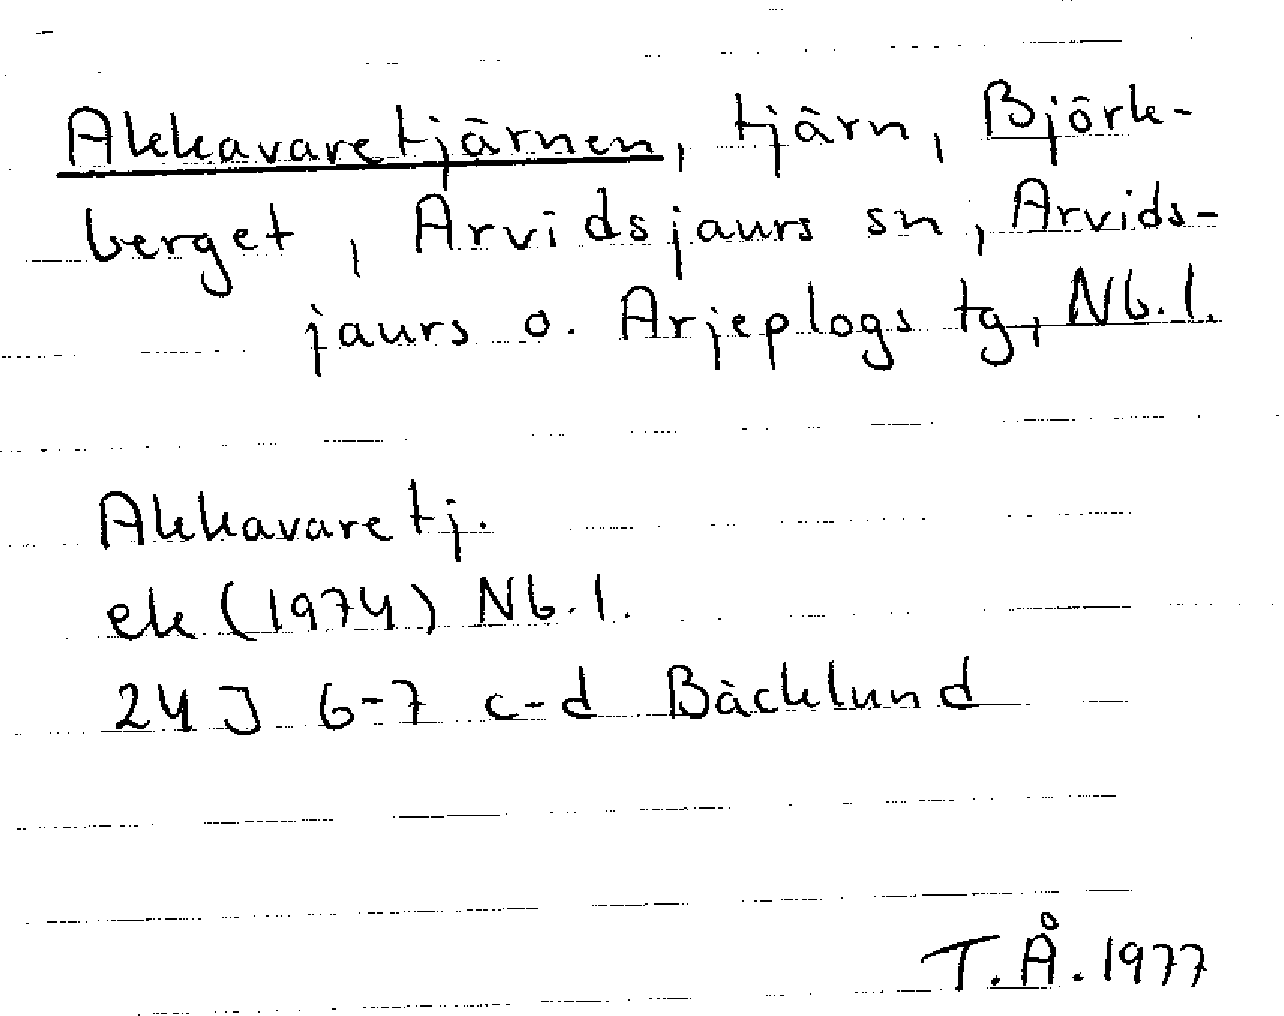 Akkavaretjärnen, tjärn, Björk-
berget, Arvidsjaurs sn, Arvids-
jaurs o. Arjeplogs tg, Nb.l.
Akkavaretj.
ek (1974) Nb.l.
24 J 6-7 c-d Bäcklund
T.Å. 1977